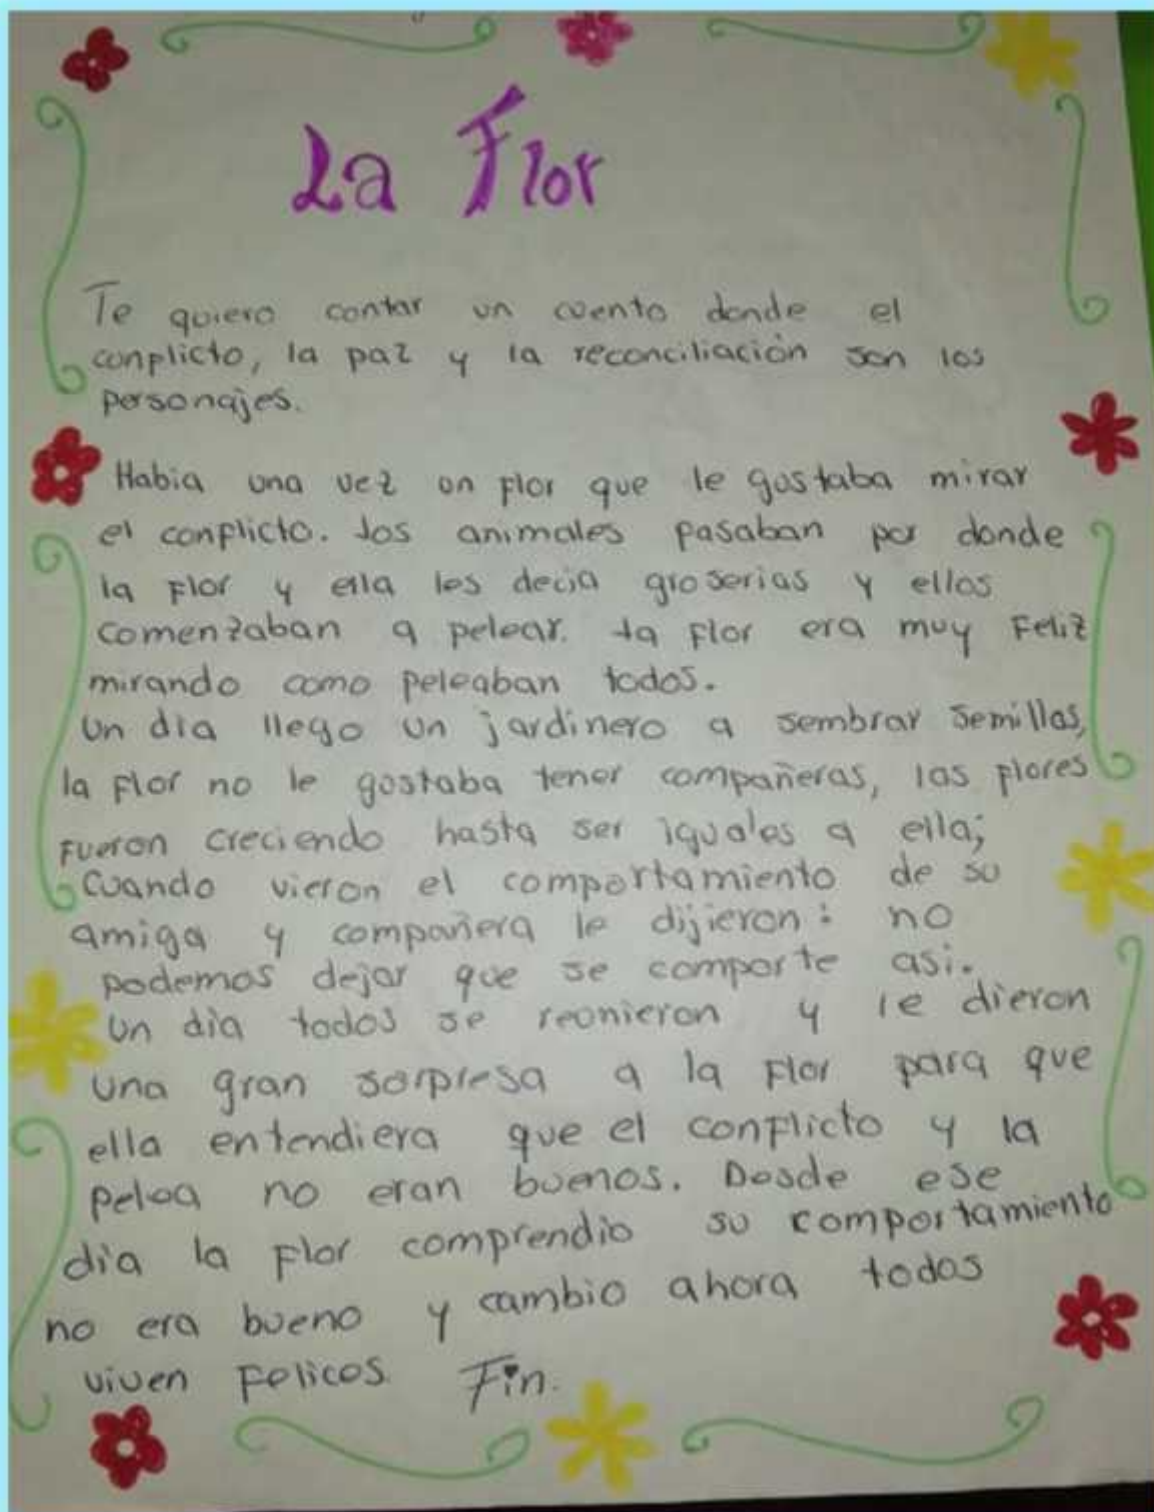 La Flor
Te quiero contar un cuento donde el
conflicto, la paz y la reconciliación son los
personajes.
Habia una vez un flor que le gustaba mirar
el conflicto. Los animales pasaban por donde
la flor y ella les decia groserias y ellos
comenzaban a pelear. La flor era muy Feliz
mirando como peleaban todos.
Un dia llego un jardinero a sembrar semillas,
la flor no le gustaba tener compañeras, las flores
fueron creciendo hasta ser iguales a ella;
Cuando vieron el comportamiento de su
amiga y compañera le dijieron: no
podemos dejar que se comporte asi.
Un dia todos se reunieron y le dieron
una gran sorpresa a la flor para que
ella entendiera que el conflicto y la
pelea no eran buenos. Desde ese
dia la flor comprendio su comportamiento
no era bueno y cambio ahora todos
viven felices. Fin.